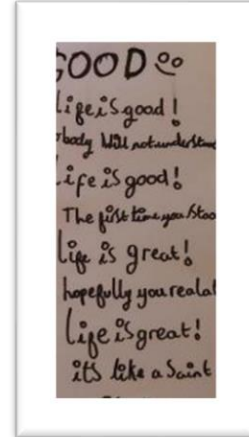 GOOD
life is good!
body will not understand
life is good!
The first time you stoo
life is great!
hopefully you reala
life is great!
its like a Saint